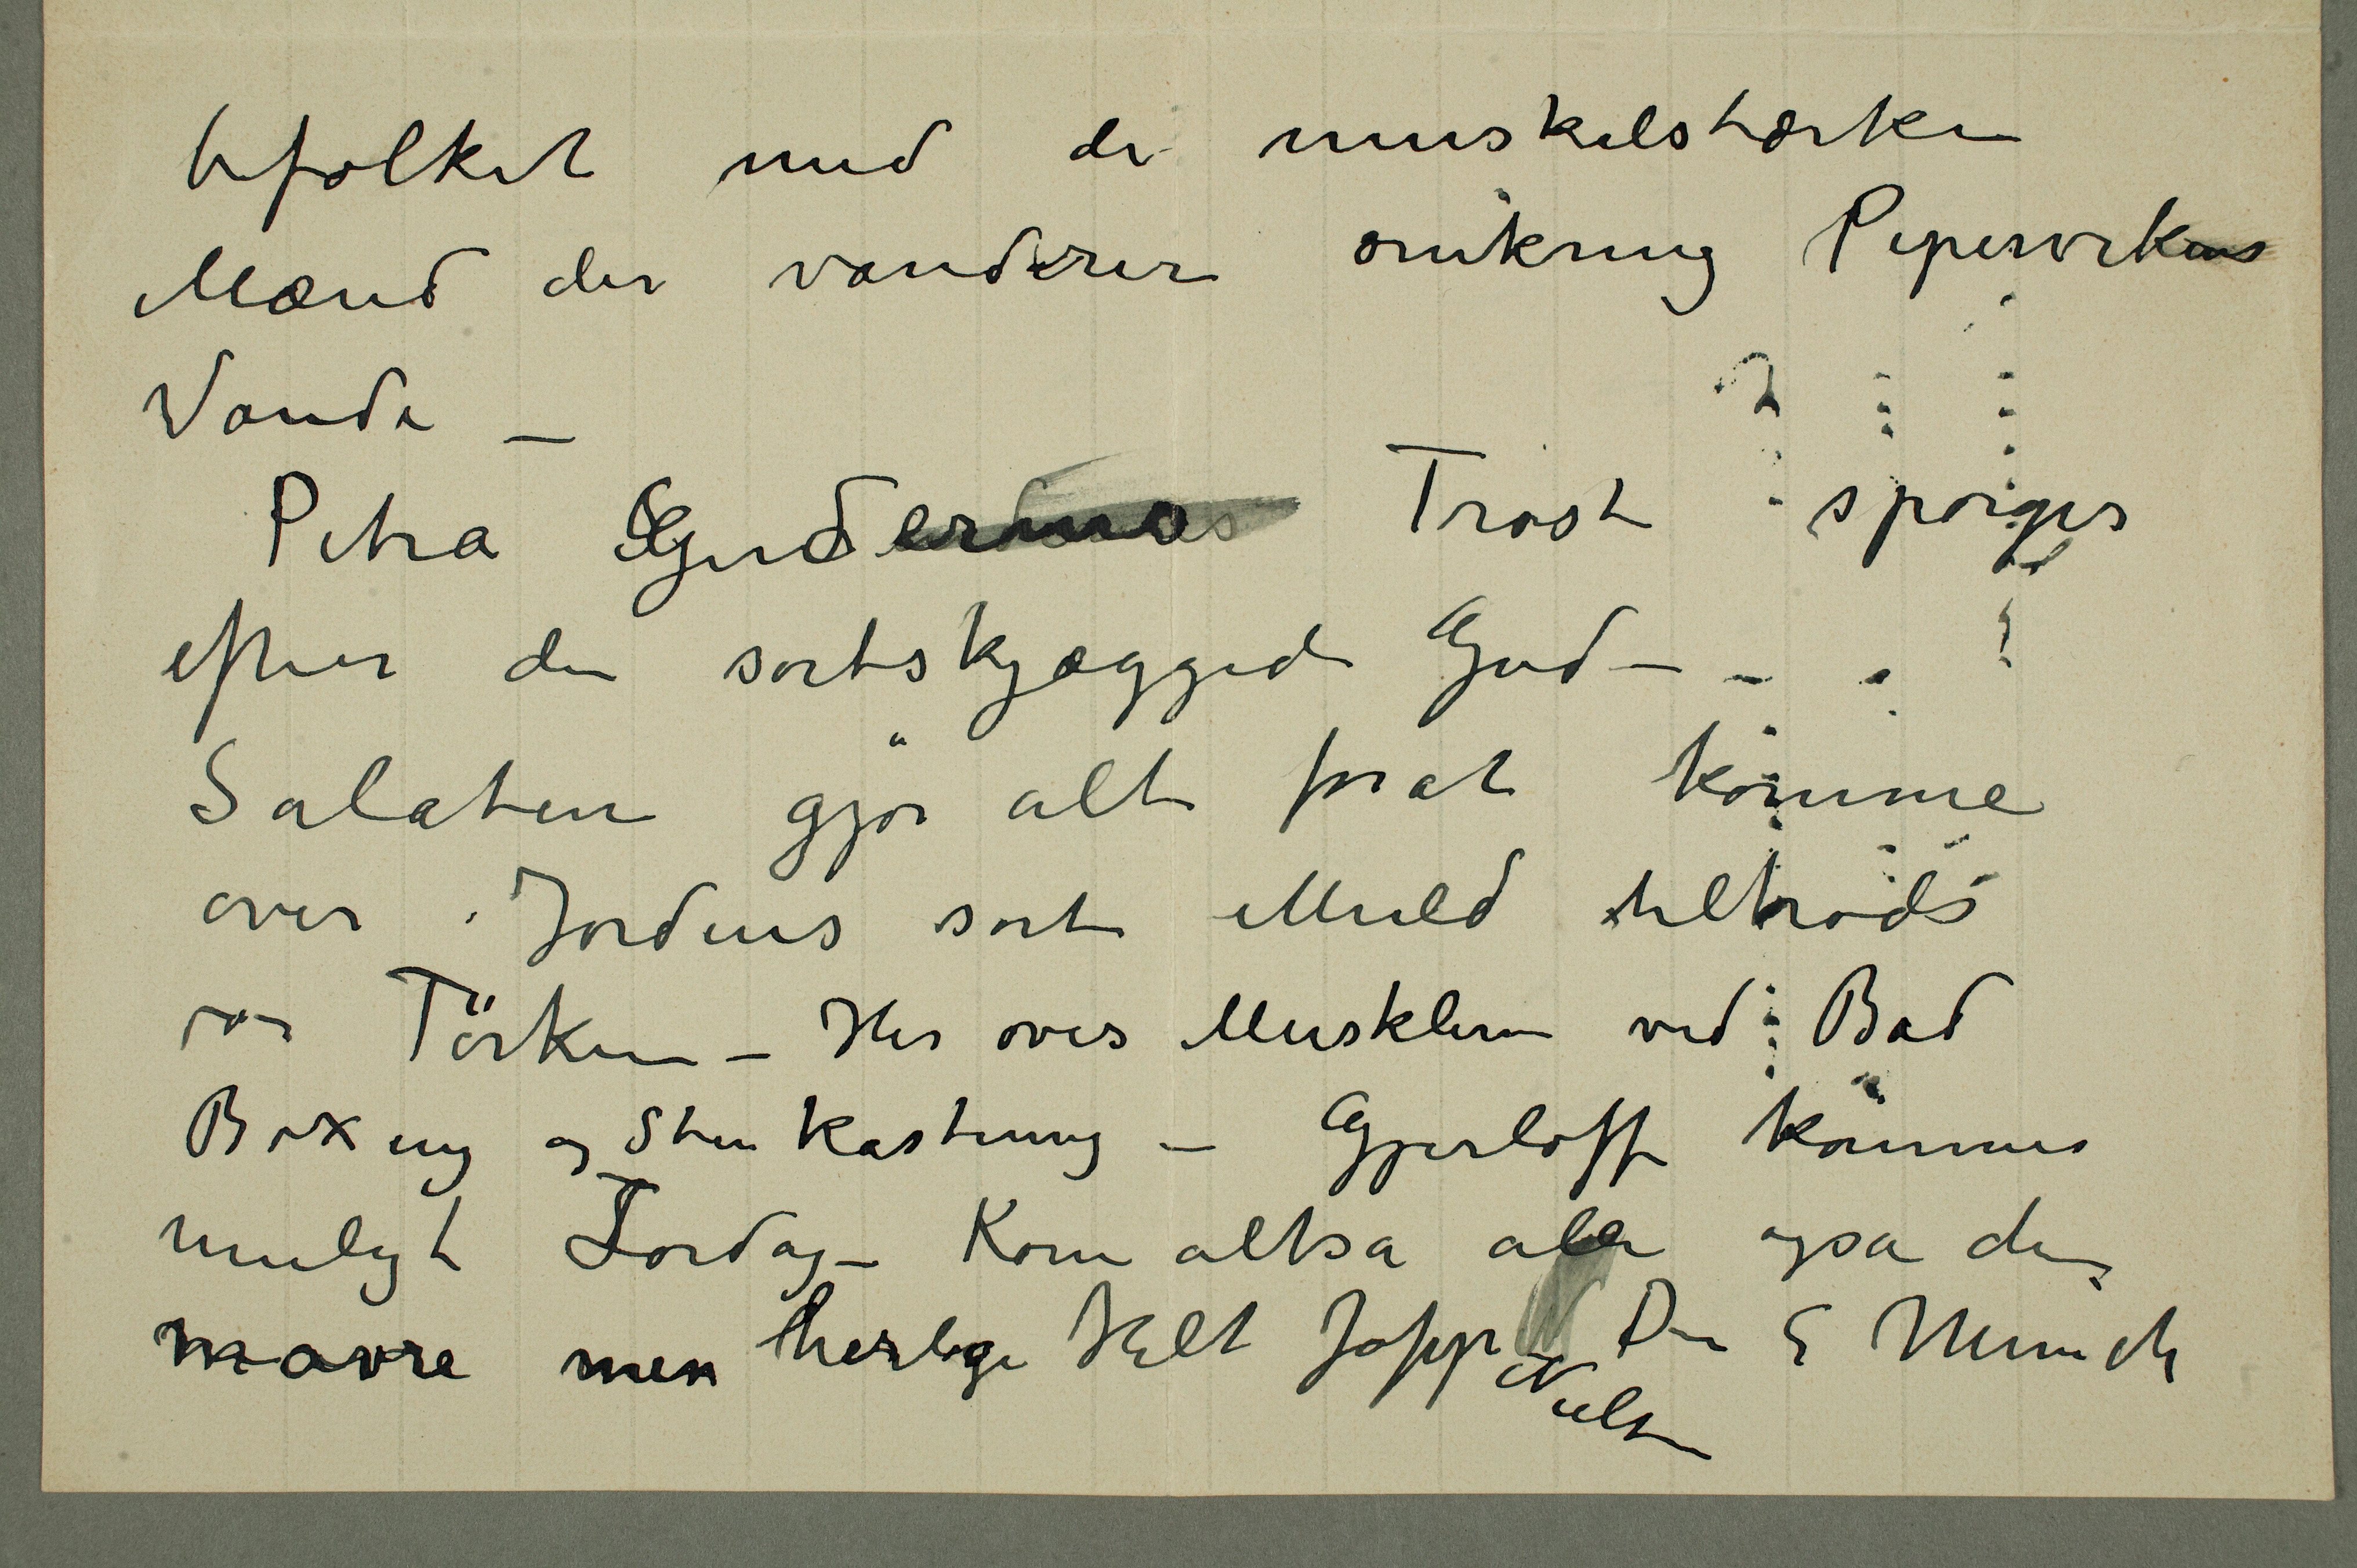 befolket med de muskelstærke
Mænd der vandrer omkring Pipervikens
Vande –
Petra Gudernes Trøst spørger
efter den sortskjæggede Gud –
Salaten gjør alt forat komme
over Jordens sorte Muld tiltrods
for Tørken – Her øves Musklerne ved Bad
Boxing og Stenkastning – Gjerløff kommer
muligt Lørdag – Kom altsa alle ogsa den
mavre men herlige Helt Jappe Din E Munch
Nielsen